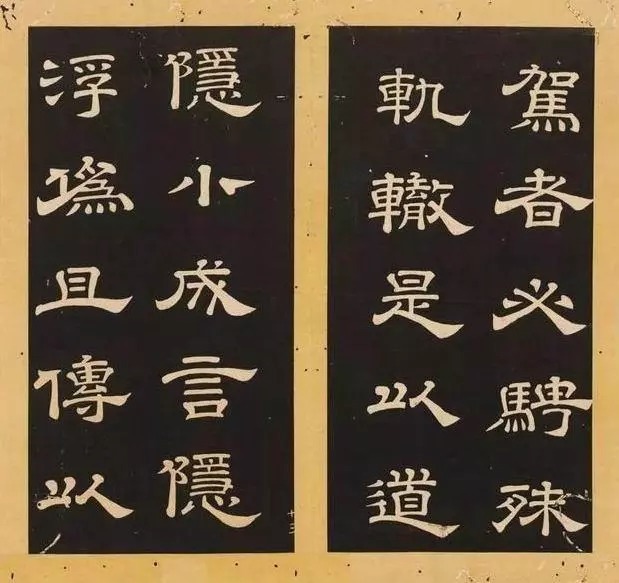 駕者必騁殊
軌轍是以道
十三
隱小成言隱
浮僞且傳以